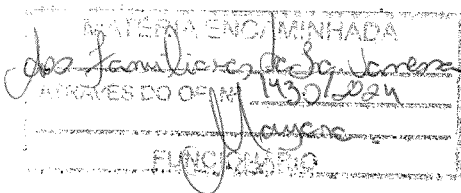 MATÉRIA ENCAMINHADA
dos Familiares da Sra Vanessa
ATRAVÉS DO OF. Nº 1430/2024
Mayara
FUNCIONÁRIO